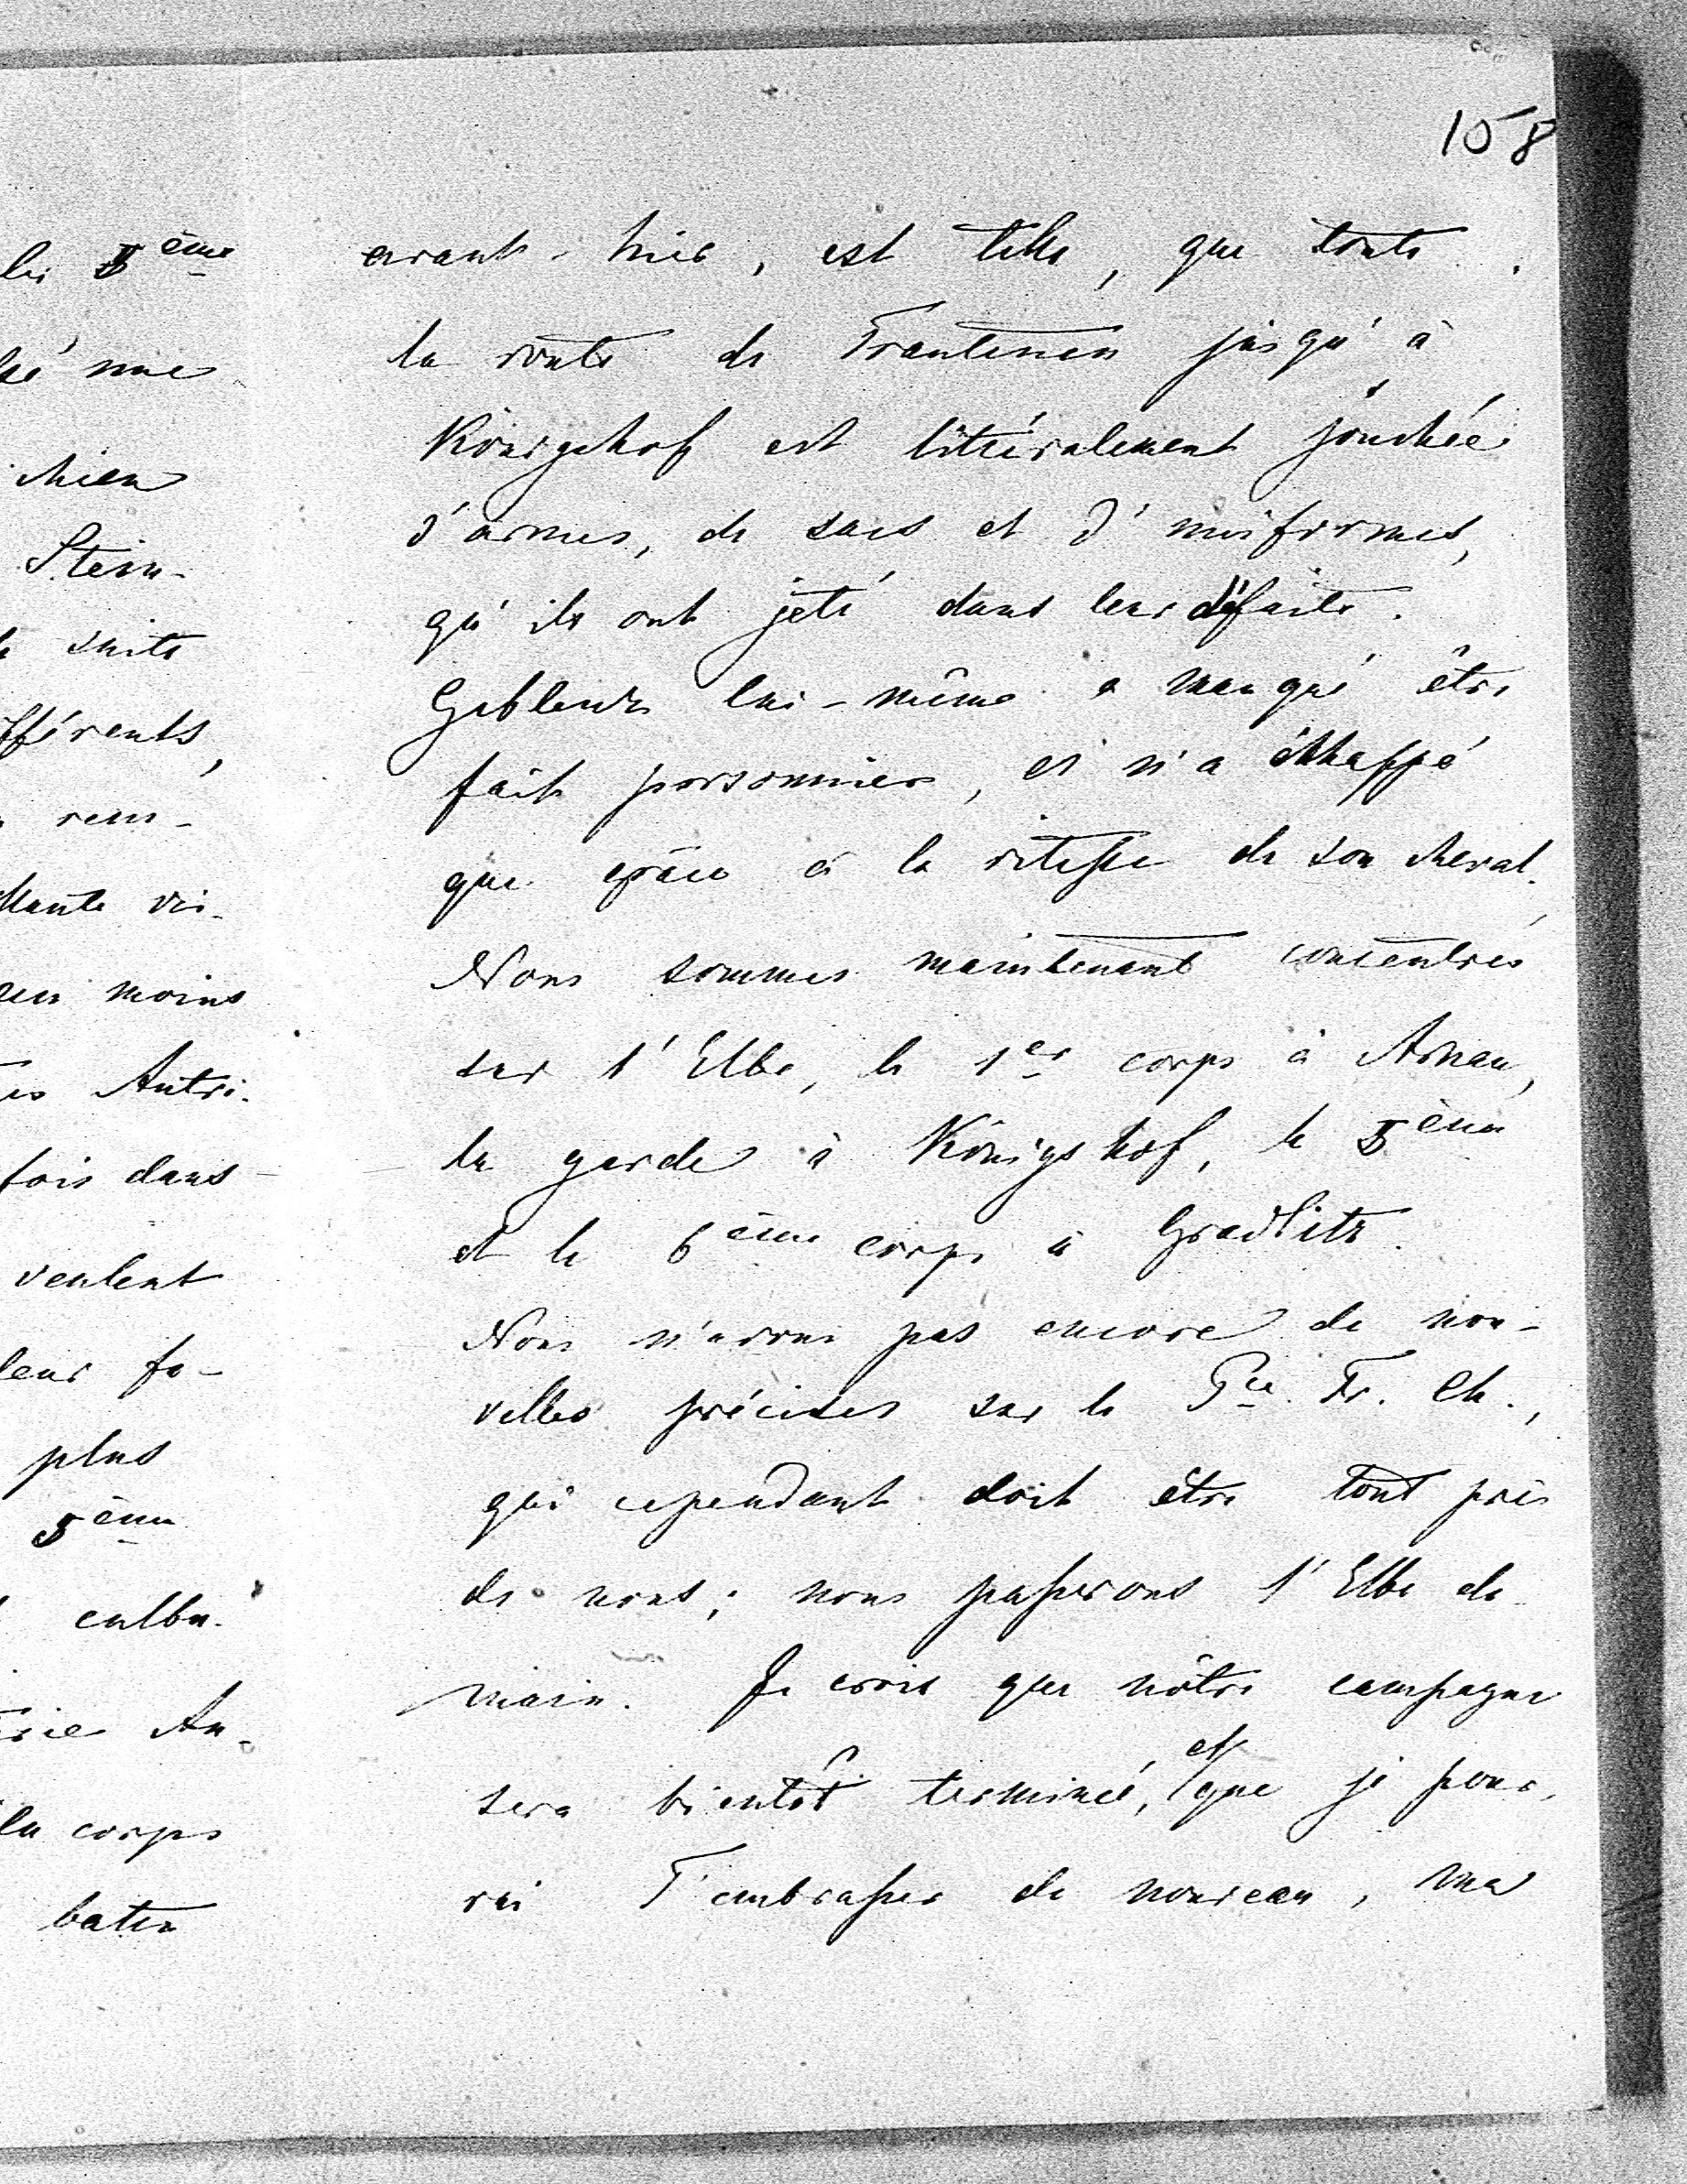 158
avant-hier, est telle, que toute
la route de Trautenau jusqu'à
Königshof est littéralement jonchée
d'armes, de sacs et d'uniformes,
qu'ils ont jeté dans leur défaite.
Gablenz lui-même a manqué être
fait prisonnier, et n'a échappé
que grâce à la vitesse de son cheval.
Nous sommes maintenant concentrés
sur l'Elbe, le 1er corps à Arnau,
la garde à Königshof, le 5ème
et le 6ème corps à Gradlitz.
Nous n'avons pas encore de nou-
velles précises sur le Pce Fr. Ch.,
qui cependant doit être tout près
de nous; nous passerons l'Elbe de
main. Je crois que nôtre campagne
sera bientôt terminée, et que je pour-
rai T'embrasser de nouveau, ma
5ème
une
chien
Stein-
suite
fférents,
rem-
vi-
moins
Autri-
fois dans
veulent
leur fa-
plus
5ème
culbu-
Au-
corps